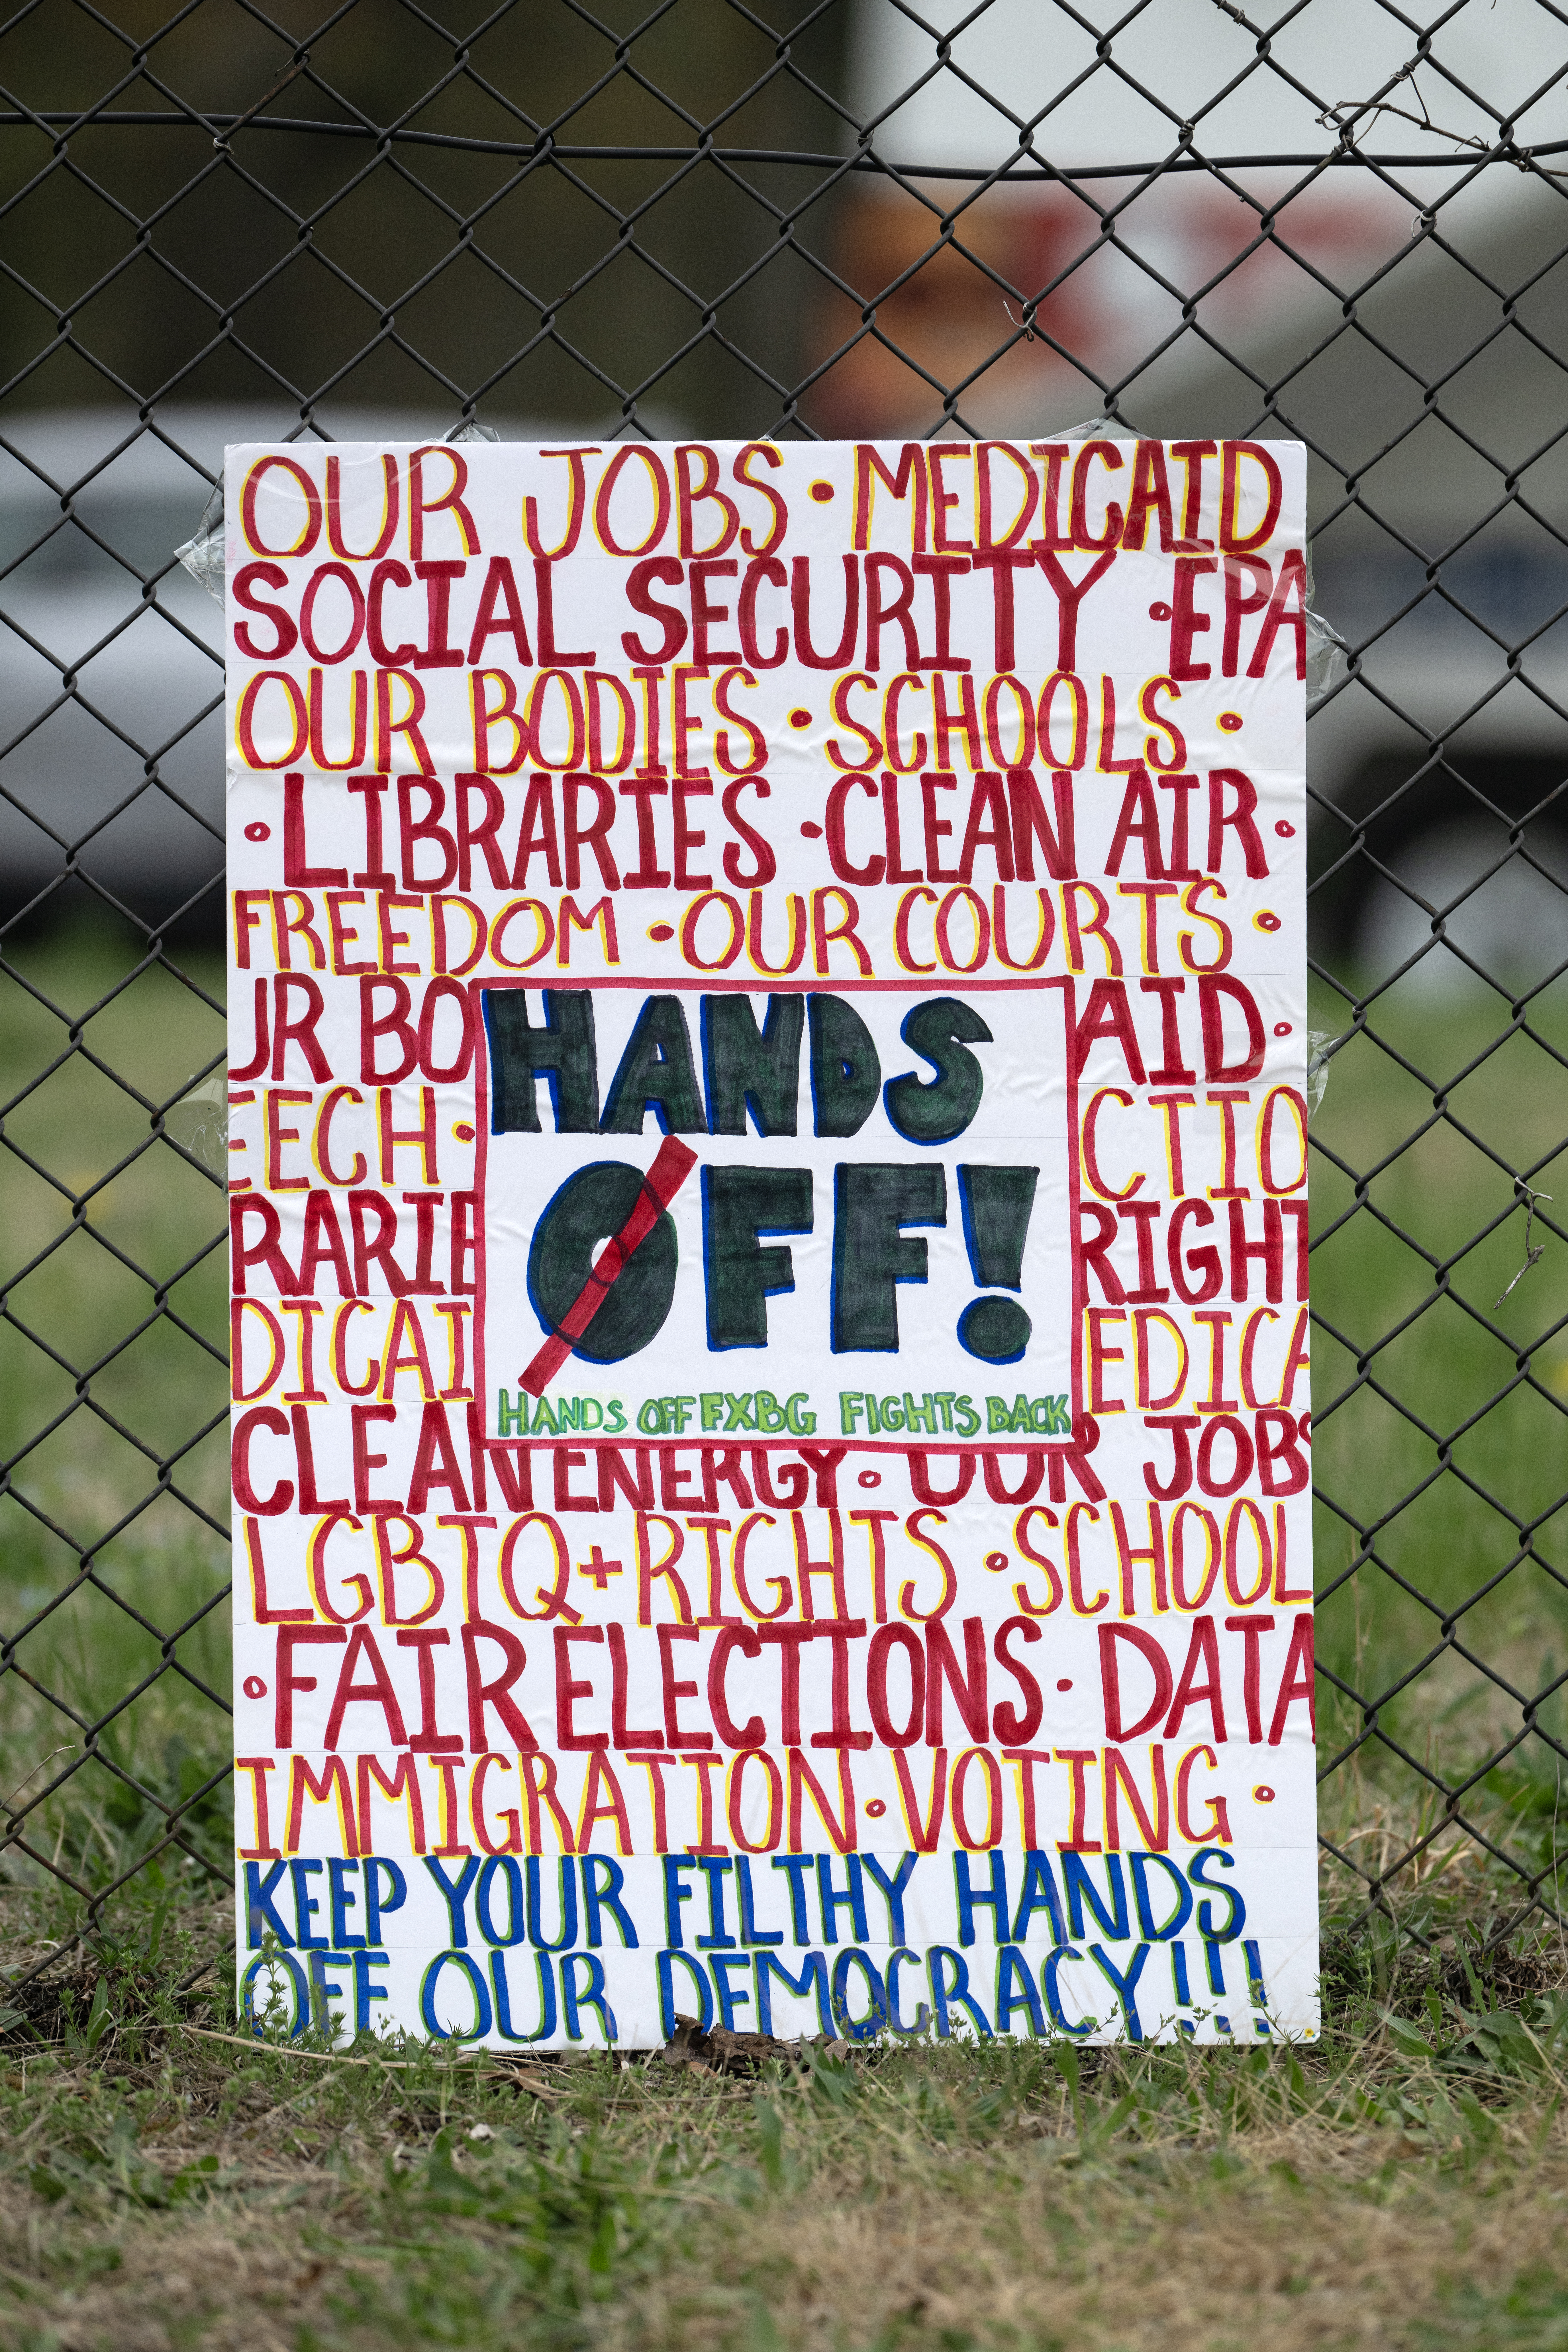 OUR JOBS • MEDICAID
SOCIAL SECURITY • EPA
OUR BODIES • SCHOOLS •
• LIBRARIES • CLEAN AIR •
FREEDOM • OUR COURTS •
UR BO
AID •
EECH •
CTIO
RARIE
RIGHT
DICAI
EDICA
HANDS
OFF!
HANDS OFF FXBG FIGHTS BACK
CLEAN ENERGY • OUR JOBS
LGBTQ+ RIGHTS • SCHOOL
• FAIR ELECTIONS • DATA
IMMIGRATION • VOTING •
KEEP YOUR FILTHY HANDS
OFF OUR DEMOCRACY!!!